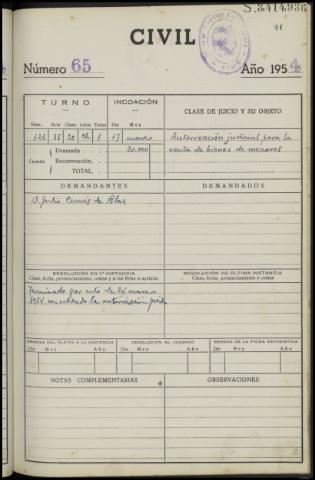 S.3414936
91
CIVIL
Número 65
Año 1954
TURNO
INCOACIÓN
CLASE DE JUICIO Y SU OBJETO
Núm. Acta Clase Letra Turno Día Mes
126 15 20 Ch 1 17 marzo
Autorización judicial para la
venta de bienes de menores
Cuantía
Demanda 20.000
Reconvención.
TOTAL.
DEMANDANTES
DEMANDADOS
D. Julio de Blas
RESOLUCIÓN EN 1.ª INSTANCIA
Clase, fecha, pronunciamiento, costas y si fue firme o apelada.
RESOLUCIÓN DE ÚLTIMA INSTANCIA
Clase, fecha, pronunciamiento, costas.
Terminado por auto de 24 marzo
1954, concediendo la autorización
REMESA DEL PLEITO A LA AUDIENCIA
DEVOLUCIÓN AL JUZGADO
REMESA DE LA FICHA ESTADÍSTICA
Día Mes Año
Día Mes Año
Día Mes Año
NOTAS COMPLEMENTARIAS
OBSERVACIONES